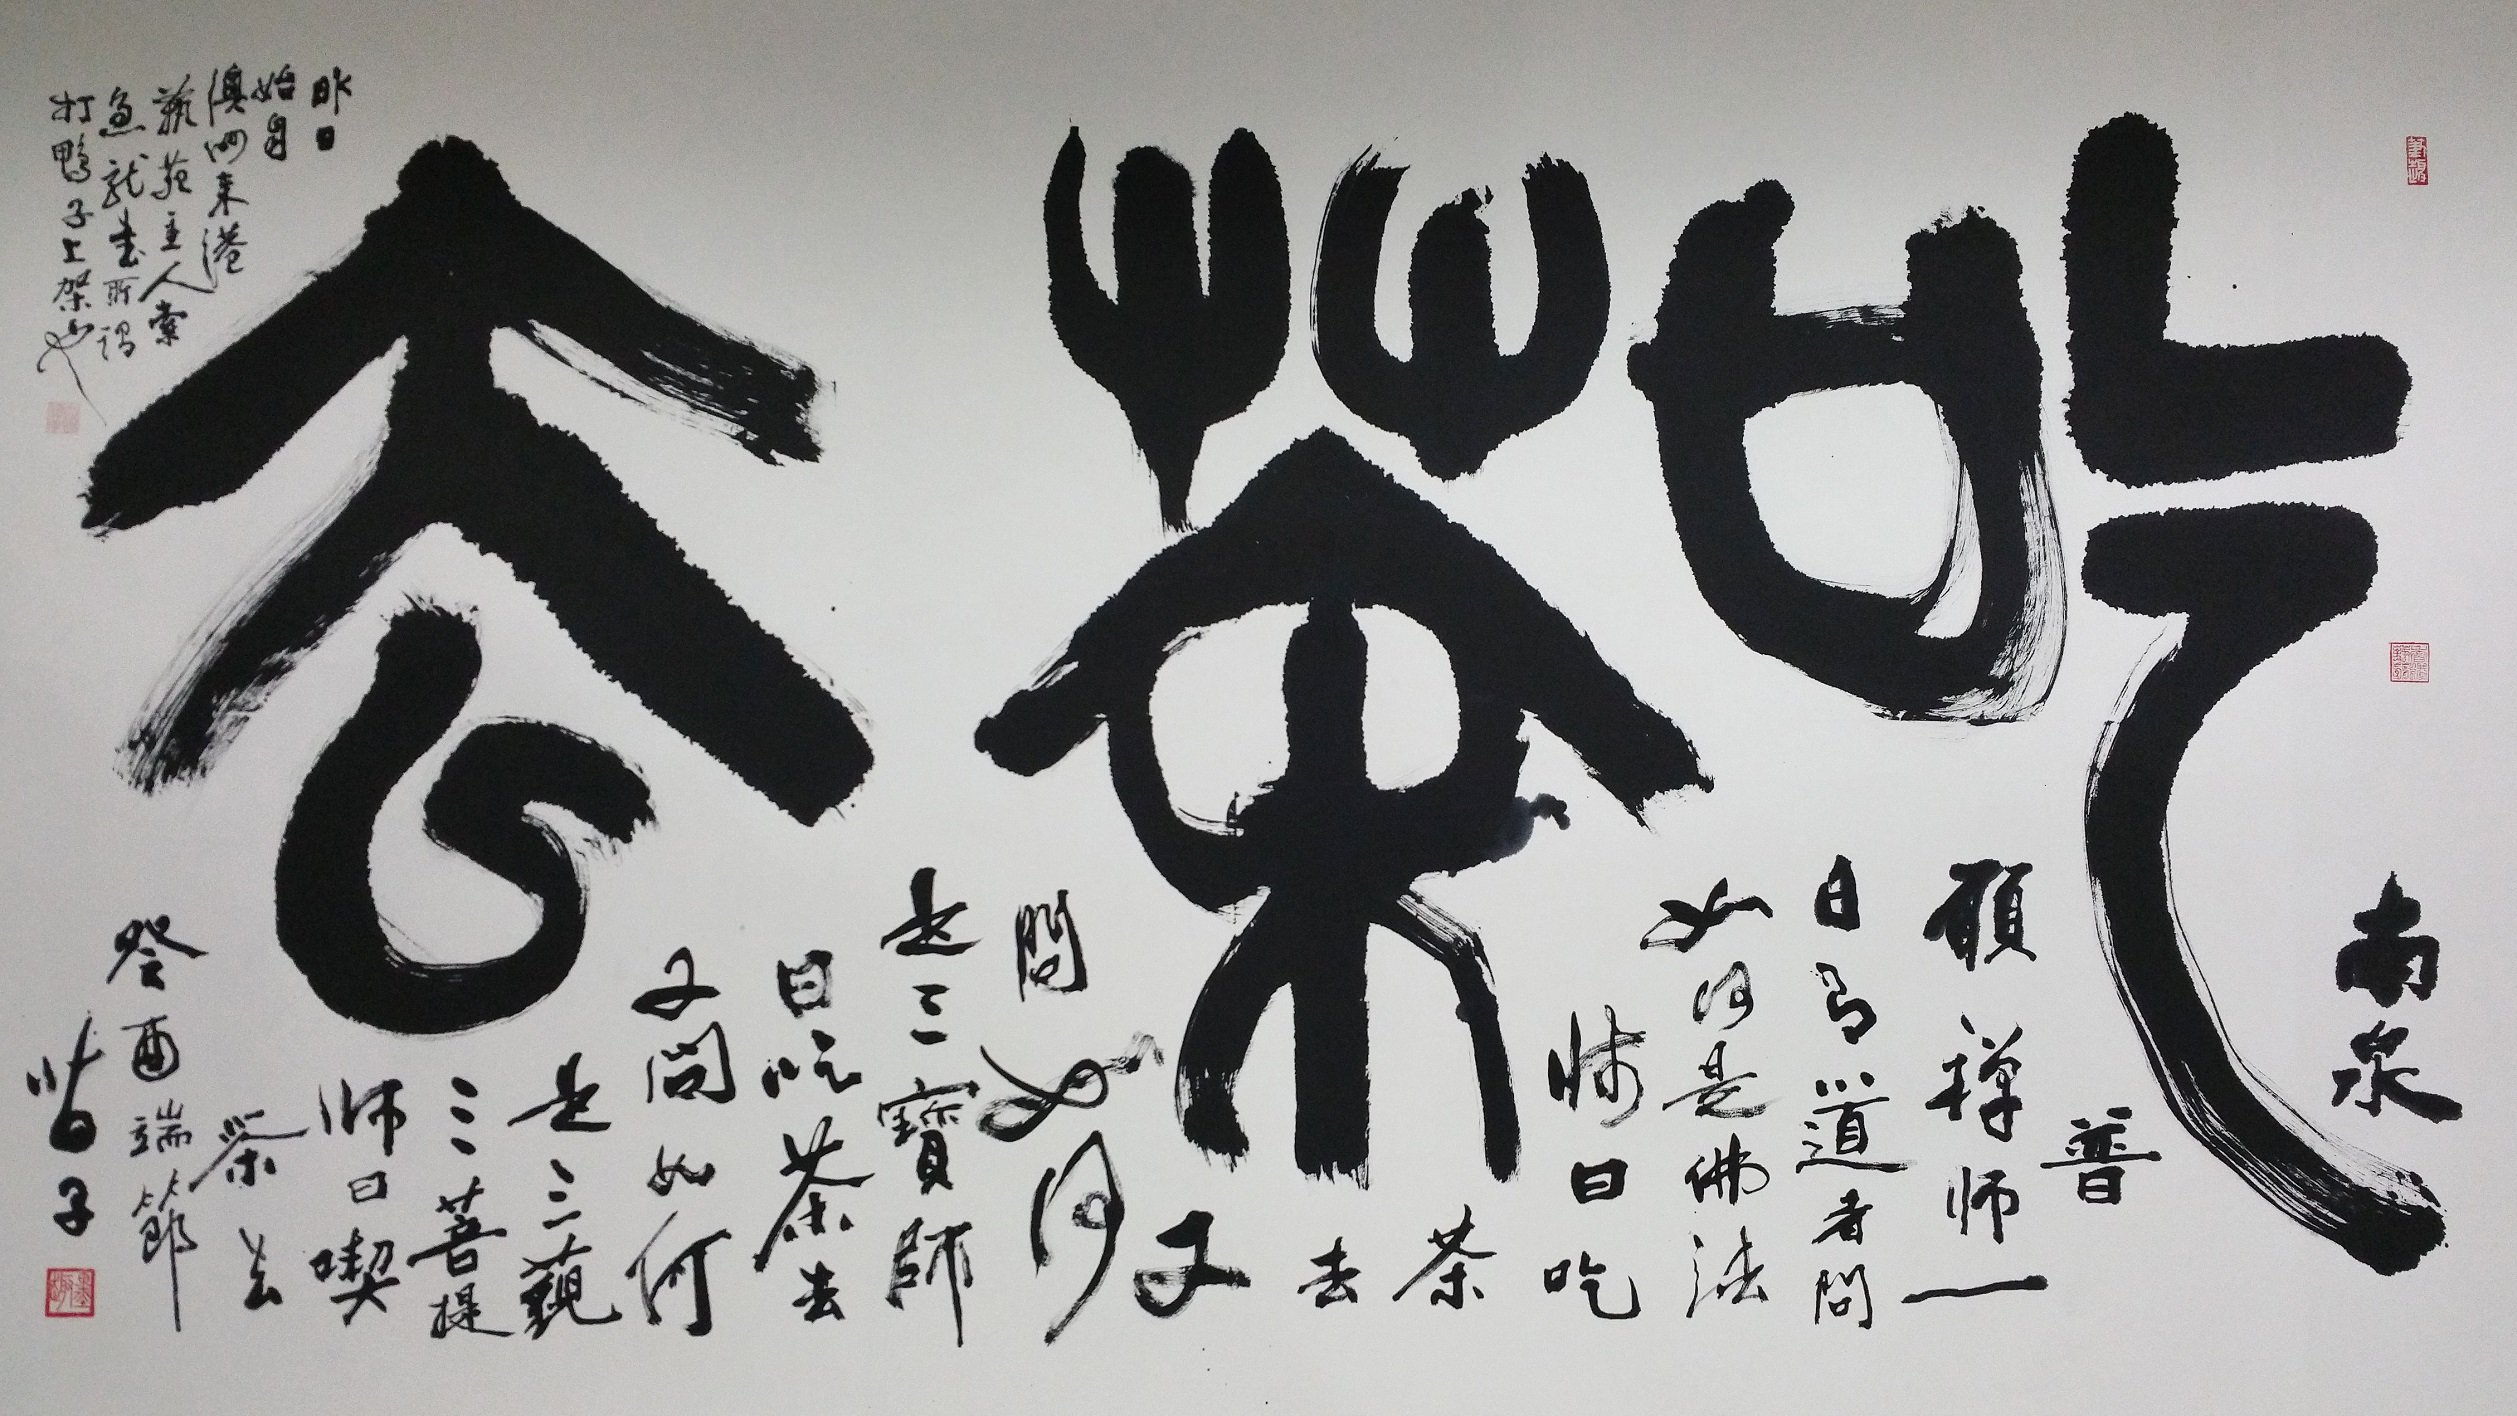 吃茶去
南泉
普
願禪師一
日有道者問
如何是佛法
師曰吃
茶
去
又
問如何
是三寶師
曰吃茶去
又問如何
是三藐
三菩提
師曰喫
茶去
癸酉端節
昨日
始自
澳洲来港
藝苑主人索
急就書所謂
打鴨子上架也